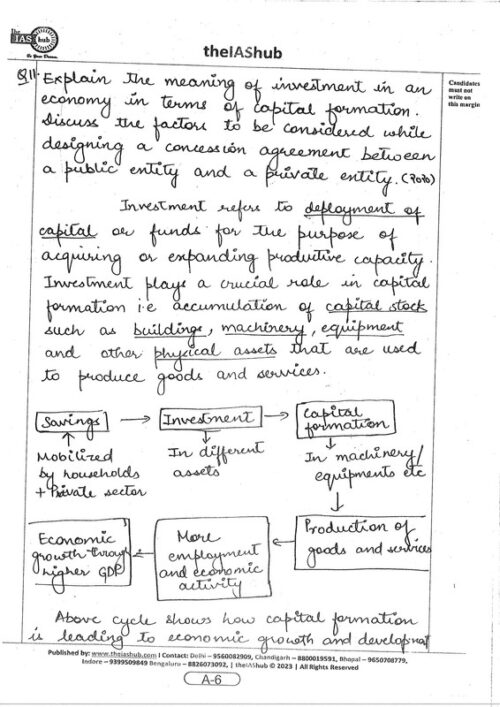 The
IAS hub
Be Your Dream.
theIAShub
Q11. Explain the meaning of investment in an
economy in terms of capital formation.
Discuss the factors to be considered while
designing a concession agreement between
a public entity and a private entity. (2020)
Candidates
must not
write on
this margin
Investment refers to deployment of
capital or funds for the purpose of
acquiring or expanding productive capacity.
Investment plays a crucial role in capital
formation i.e accumulation of capital stock
such as buildings, machinery, equipment
and other physical assets that are used
to produce goods and services.
Savings → Investment → Capital formation
Mobilized by households + Private sector
In different assets
In machinery/ equipments etc
Production of goods and services
More employment and economic activity
Economic growth through higher GDP
Above cycle shows how capital formation
is leading to economic growth and development
Published by: www.theiashub.com I Contact: Delhi – 9560082909, Chandigarh – 8800019591, Bhopal – 9650708779,
Indore – 9399509849 Bengaluru – 8826073092, | theIAShub © 2023 | All Rights Reserved
A-6